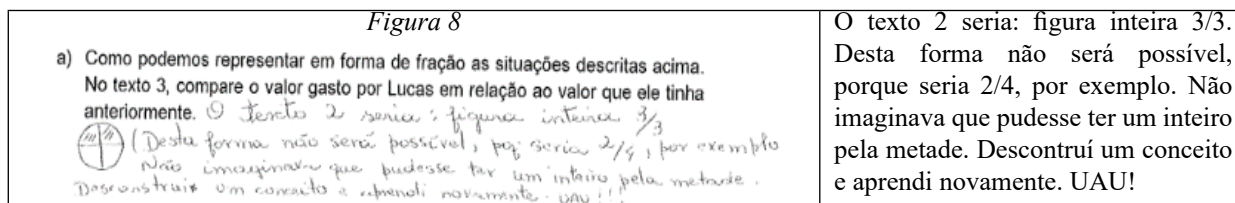 Figura 8
a) Como podemos representar em forma de fração as situações descritas acima.
No texto 3, compare o valor gasto por Lucas em relação ao valor que ele tinha
anteriormente. O texto 2 seria: figura inteira 3/3
(Desta forma não será possível, pq seria 2/4, por exemplo
Não imaginava que pudesse ter um inteiro pela metade.
Desconstruir um conceito e aprendi novamente. UAU!!!
O texto 2 seria: figura inteira 3/3.
Desta forma não será possível,
porque seria 2/4, por exemplo. Não
imaginava que pudesse ter um inteiro
pela metade. Descontruí um conceito
e aprendi novamente. UAU!